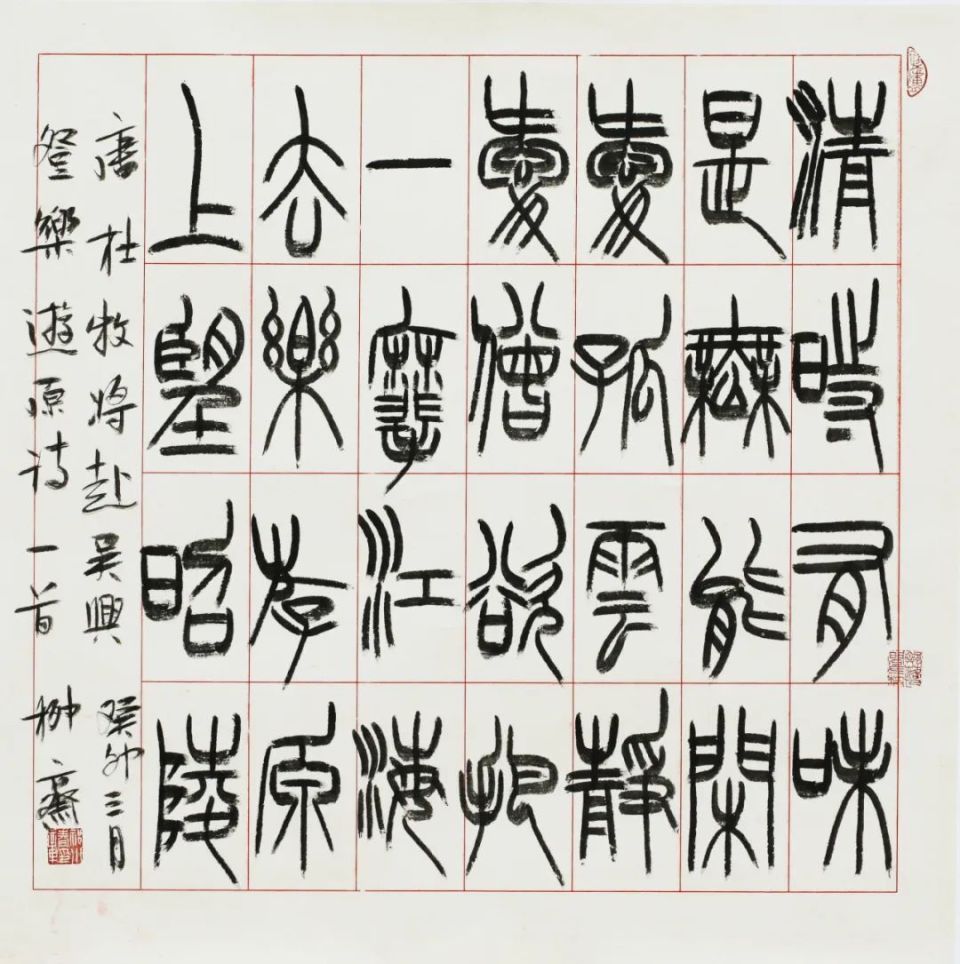 清時有味
是無能閑
愛孤雲靜
愛僧欲把
一麾江海
去樂斿原
上望昭陵
唐杜牧将赴吴興 癸卯三月
登樂遊原詩一首 齋